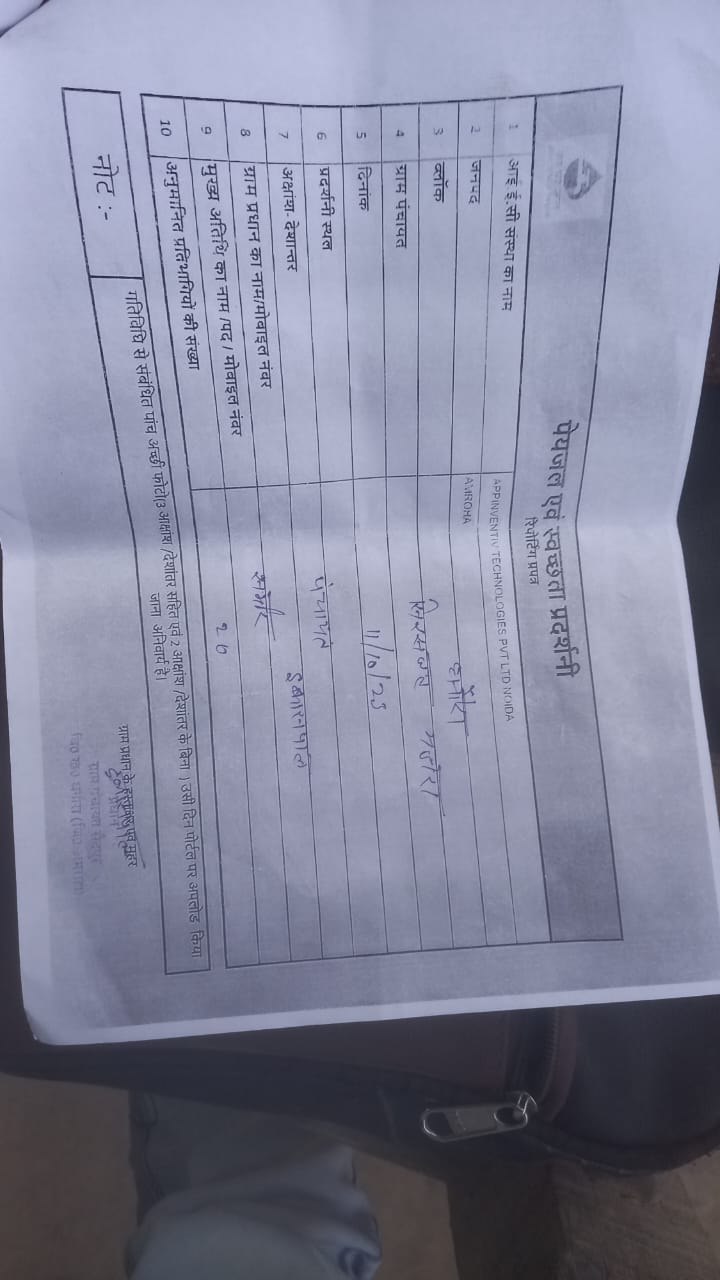 पेयजल एवं स्वच्छता प्रदर्शनी
रिपोर्टिंग प्रपत्र
1 आई.ई.सी संस्था का नाम APPINVENTIV TECHNOLOGIES PVT LTD NOIDA
2 जनपद AMROHA
3 ब्लॉक
4 ग्राम पंचायत
5 दिनांक 11/10/25
6 प्रदर्शनी स्थल पंचायत
7 अक्षांश- देशान्तर
8 ग्राम प्रधान का नाम/मोबाइल नंबर
9 मुख्य अतिथि का नाम /पद / मोबाइल नंबर
10 अनुमानित प्रतिभागियों की संख्या 20
नोट :- गतिविधि से संबंधित पांच अच्छी फोटो(3 अक्षांश /देशांतर सहित एवं 2 अक्षांश /देशांतर के बिना ) उसी दिन पोर्टल पर अपलोड किया
जाना अनिवार्य है।
ग्राम प्रधान के हस्ताक्षर एवं मुहर